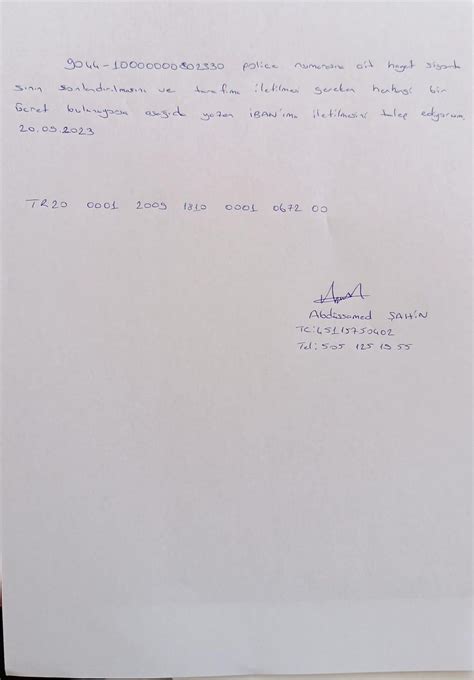 9044-10000000802330 police numarasına ait hayat sigorta
sının sonlandırılmasını ve tarafıma iletilmesi gereken herhangi bir
ücret bulunuyorsa aşağıda yazan IBAN'ıma iletilmesini talep ediyorum.
20.09.2023
TR20 0001 2009 1810 0001 0672 00
Abdüssamed ŞAHİN
TC: 45115750402
Tel: 505 125 15 55